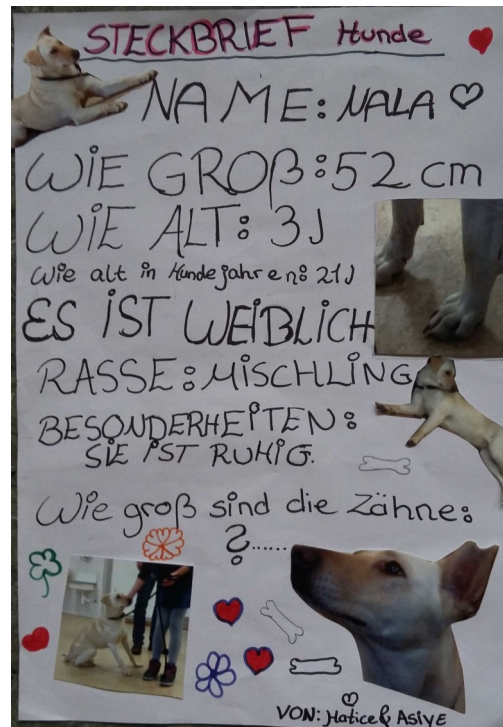 STECKBRIEF Hunde
NAME: NALA
WIE GROß: 52 cm
WIE ALT: 3J
Wie alt in Hundejahren: 21J
ES IST WEIBLICH
RASSE: MISCHLING
BESONDERHEITEN:
SIE IST RUHIG.
Wie groß sind die Zähne:
?......
VON: Hatice & ASIYE